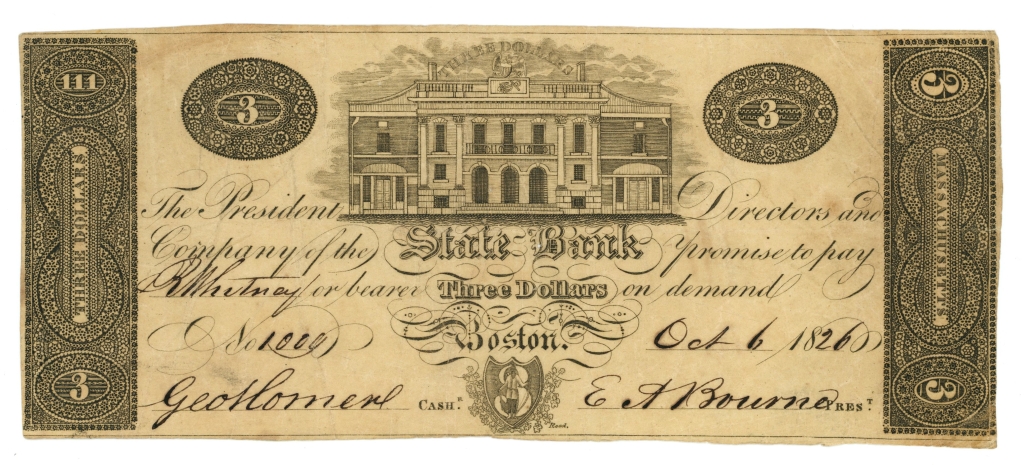 THREE DOLLARS
III
3
3
3
THREE DOLLARS
MASSACHUSETTS
The President Directors and
Company of the State Bank promise to pay
R Whitney or bearer Three Dollars on demand
No 1009 Boston. Oct 6 1826
3
3
Geo Homer CASHR. E A Bourne PREST.
Reed.